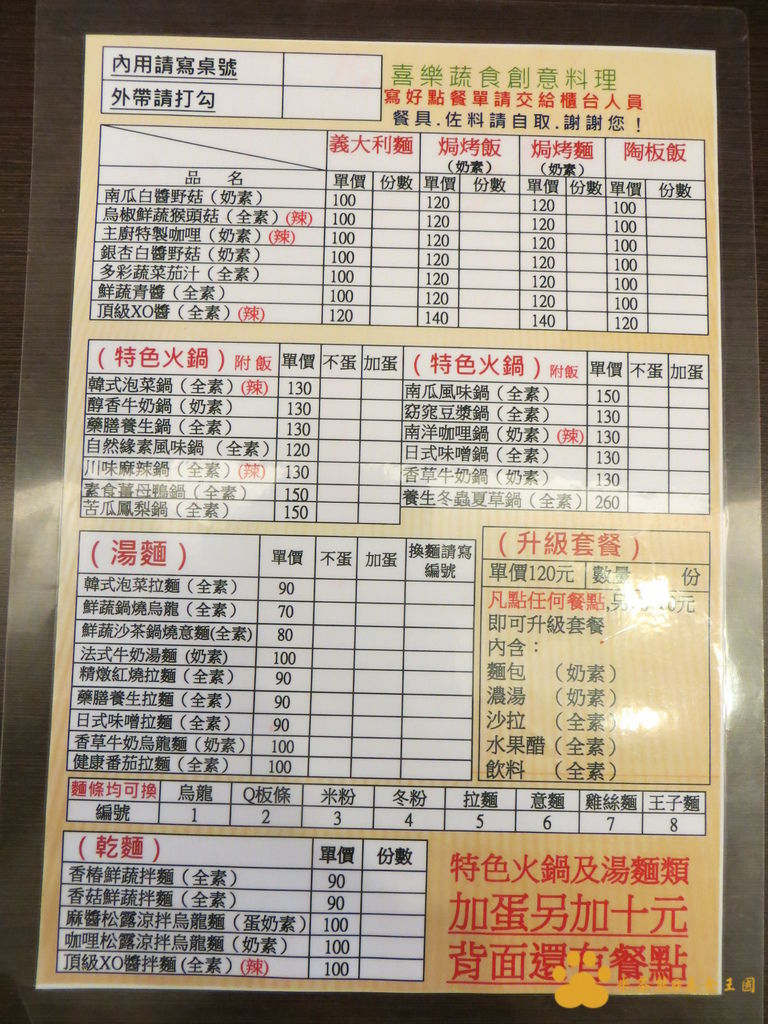 內用請寫桌號
外帶請打勾
喜樂蔬食創意料理
寫好點餐單請交給櫃台人員
餐具.佐料請自取.謝謝您！
義大利麵 焗烤飯(奶素) 焗烤麵(奶素) 陶板飯
品 名 單價 份數 單價 份數 單價 份數 單價 份數
南瓜白醬野菇（奶素） 100 120 120 100
烏椒鮮蔬猴頭菇（全素）(辣) 100 120 120 100
主廚特製咖哩（奶素）(辣) 100 120 120 100
銀杏白醬野菇（奶素） 100 120 120 100
多彩蔬菜茄汁（全素） 100 120 120 100
鮮蔬青醬（全素） 100 120 120 100
頂級XO醬（全素）(辣) 120 140 140 120
（特色火鍋）附飯 單價 不蛋 加蛋
韓式泡菜鍋（全素）(辣) 130
醇香牛奶鍋（奶素） 130
藥膳養生鍋（全素） 130
自然緣素風味鍋（全素） 120
川味麻辣鍋（全素）(辣) 130
素食薑母鴨鍋（全素） 150
苦瓜鳳梨鍋（全素） 150
（特色火鍋）附飯 單價 不蛋 加蛋
南瓜風味鍋（全素） 150
窈窕豆漿鍋（全素） 130
南洋咖哩鍋（奶素）(辣) 130
日式味噌鍋（全素） 130
香草牛奶鍋（奶素） 130
養生冬蟲夏草鍋（全素） 260
（湯麵） 單價 不蛋 加蛋 換麵請寫編號
韓式泡菜拉麵（全素） 90
鮮蔬鍋燒烏龍（全素） 70
鮮蔬沙茶鍋燒意麵(全素) 80
法式牛奶湯麵 (奶素) 100
精燉紅燒拉麵（全素） 90
藥膳養生拉麵（全素） 90
日式味噌拉麵（全素） 90
香草牛奶烏龍麵（奶素） 100
健康番茄拉麵（全素） 100
（升級套餐）
單價120元 數量 份
凡點任何餐點,
元
即可升級套餐
內含：
麵包 （奶素）
濃湯 （奶素）
沙拉 （全素）
水果醋（全素）
飲料 （全素）
麵條均可換 烏龍 Q板條 米粉 冬粉 拉麵 意麵 雞絲麵 王子麵
編號 1 2 3 4 5 6 7 8
（乾麵） 單價 份數
香椿鮮蔬拌麵（全素） 90
香菇鮮蔬拌麵（全素） 90
麻醬松露涼拌烏龍麵（蛋奶素） 100
咖哩松露涼拌烏龍麵（奶素） 100
頂級XO醬拌麵(全素)（辣） 100
特色火鍋及湯麵類
加蛋另加十元
背面還有餐點
王國